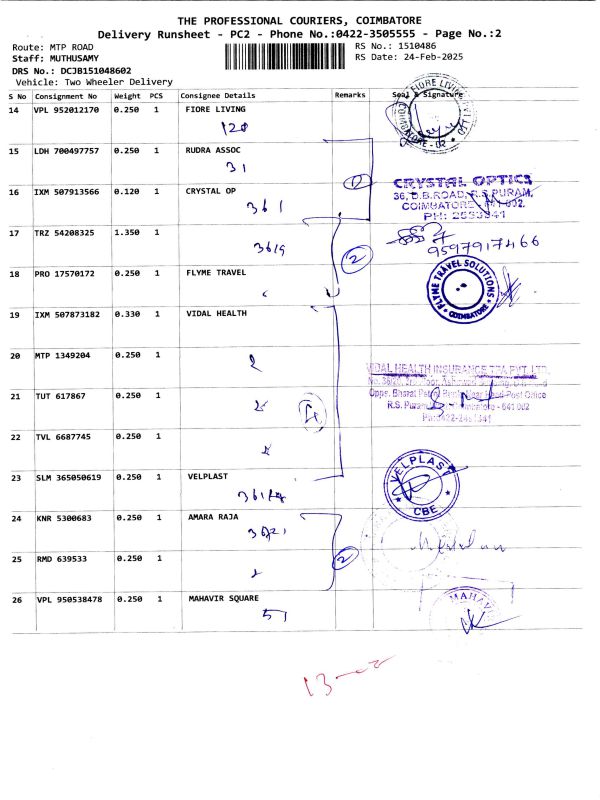 THE PROFESSIONAL COURIERS, COIMBATORE
Delivery Runsheet - PC2 - Phone No.:0422-3505555 - Page No.:2
Route: MTP ROAD
Staff: MUTHUSAMY
DRS No.: DCJB151048602
Vehicle: Two Wheeler Delivery
RS No.: 1510486
RS Date: 24-Feb-2025
S No Consignment No Weight PCS Consignee Details Remarks Seal & Signature
14 VPL 952012170 0.250 1 FIORE LIVING
120
FIORE LIVING
COIMBATORE - 02
15 LDH 700497757 0.250 1 RUDRA ASSOC
31
16 IXM 507913566 0.120 1 CRYSTAL OP
361
1
CRYSTAL OPTICS
36, D.B.ROAD, R.S.PURAM,
COIMBATORE - 641 002.
PH: 2553341
17 TRZ 54208325 1.350 1
3619
2
9597917466
18 PRO 17570172 0.250 1 FLYME TRAVEL
FLYME TRAVEL SOLUTIONS
COIMBATORE
19 IXM 507873182 0.330 1 VIDAL HEALTH
20 MTP 1349204 0.250 1
VIDAL HEALTH INSURANCE TPA PVT. LTD.
21 TUT 617867 0.250 1
Opps. Bharat Petrol Bunk, Near Head Post Office
R.S. Puram, Coimbatore - 641 002
22 TVL 6687745 0.250 1
23 SLM 365050619 0.250 1 VELPLAST
VELPLAST
CBE
24 KNR 5300683 0.250 1 AMARA RAJA
3621
25 RMD 639533 0.250 1
2
26 VPL 950538478 0.250 1 MAHAVIR SQUARE
51
MAHAVI
13